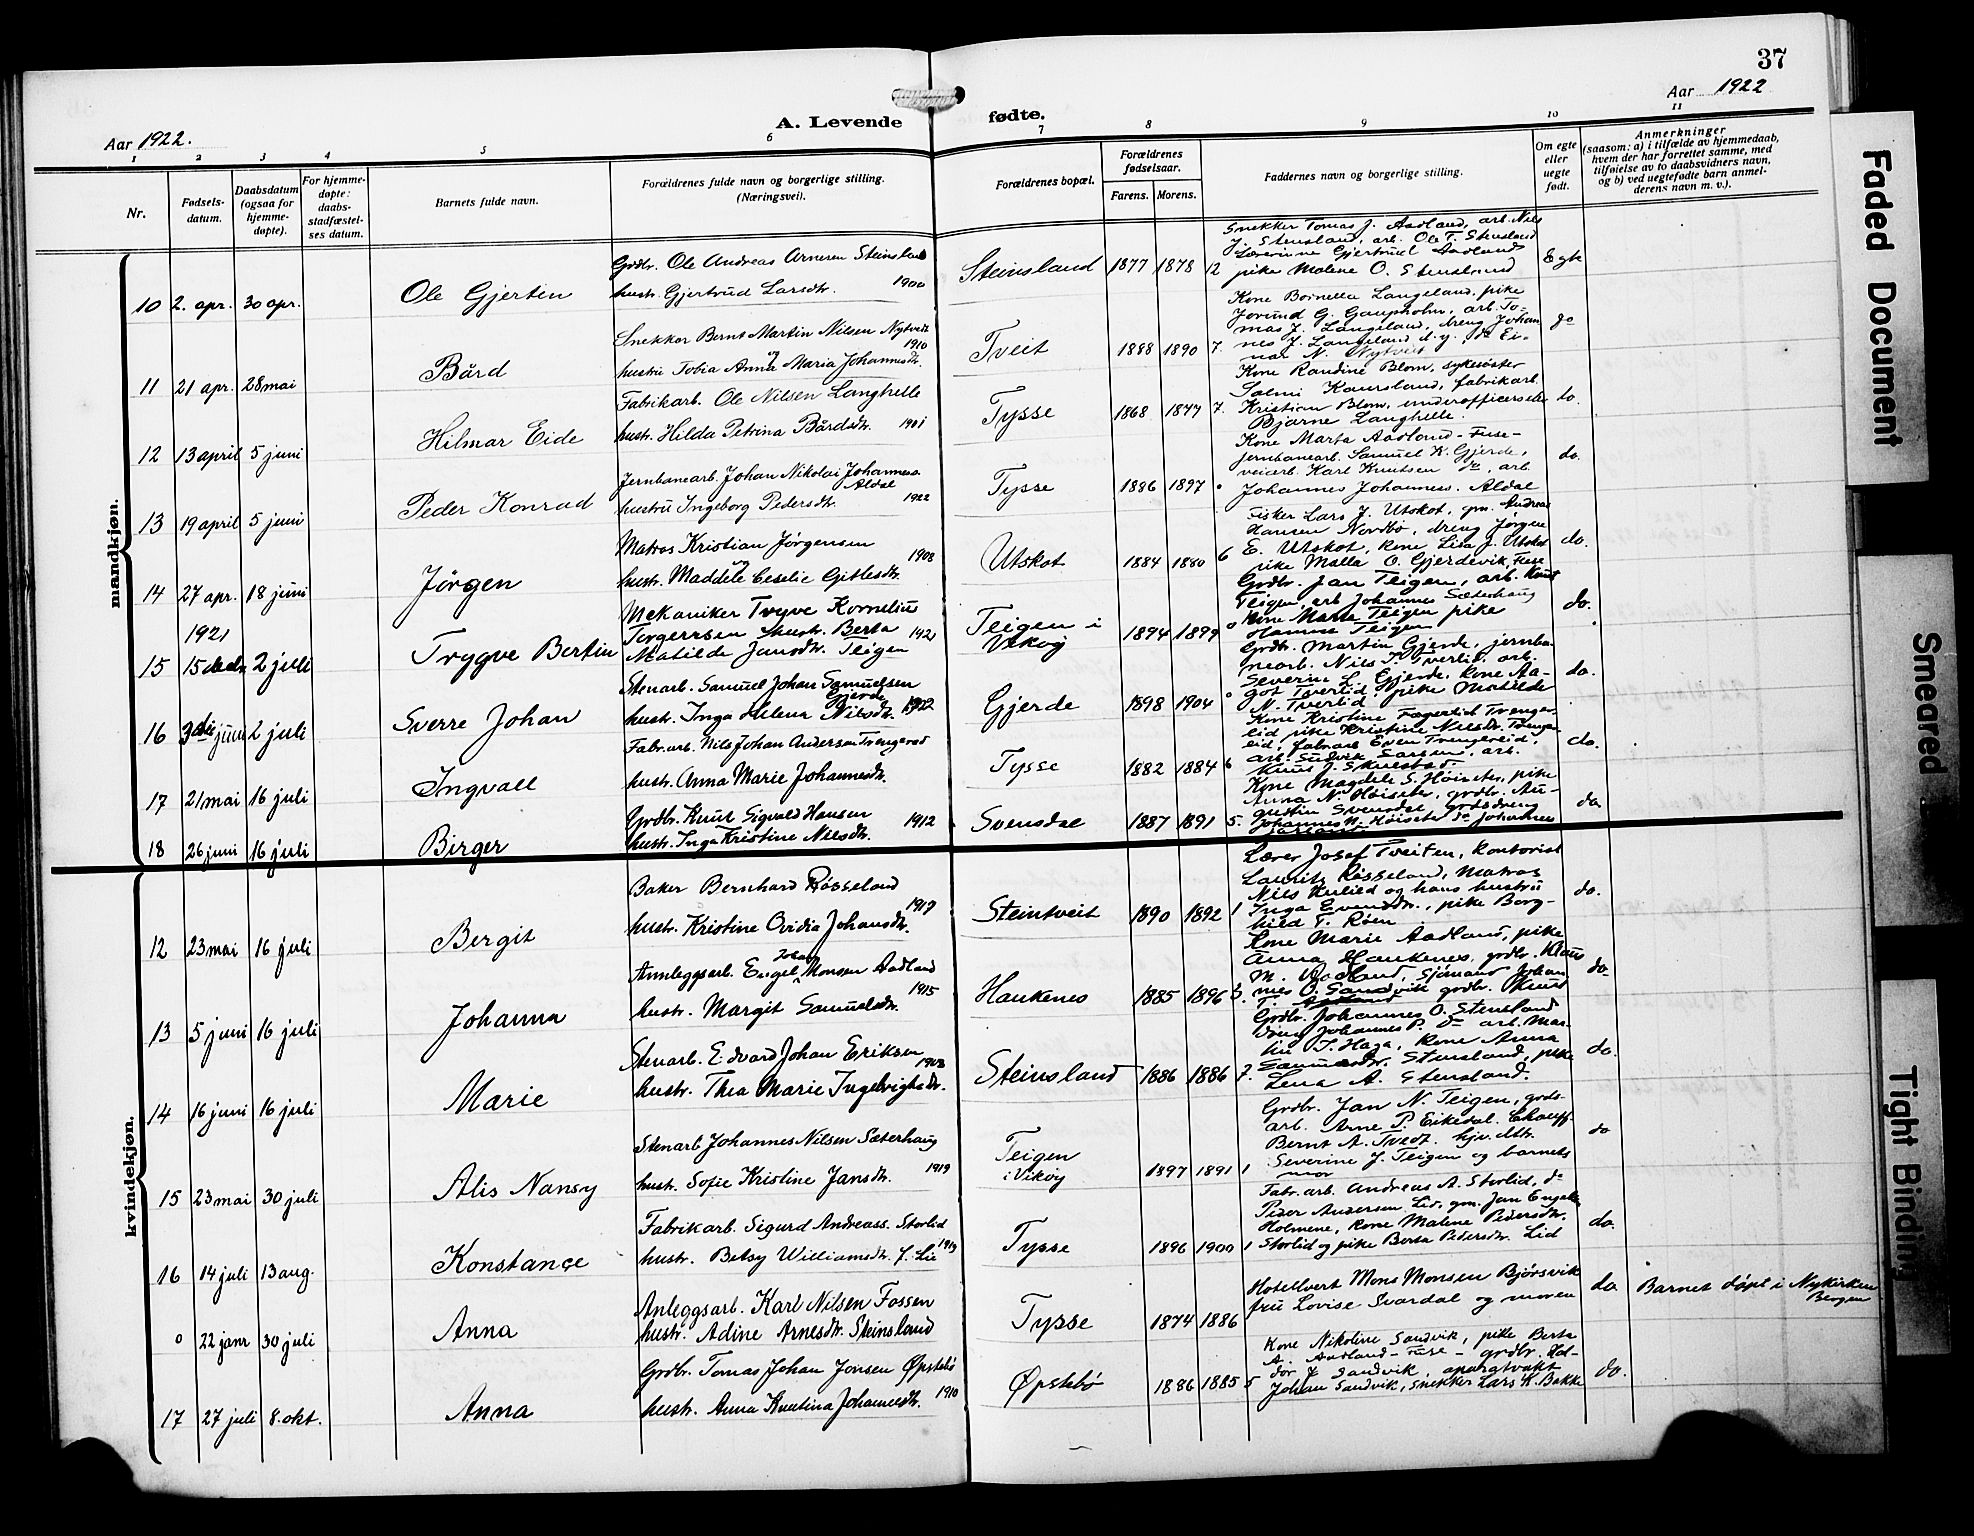 37
Aar 1922.
A. Levende
fødte.
Aar 1922
1 2 3 4 5 6 7 8 9 10 11
Nr.
Fødsels-
datum.
Daabsdatum
(ogsaa for
hjemme-
døpte).
For hjemme-
døpte:
daabs-
stadfæstel-
ses datum.
Barnets fulde navn.
Forældrenes fulde navn og borgerlige stilling.
(Næringsvei).
Forældrenes bopæl.
Forældrenes
fødselsaar.
Farens. Morens.
Faddernes navn og borgerlige stilling.
Om egte
eller
uegte
født.
Anmerkninger
(saasom: a) i tilfælde av hjemmedaab,
hvem der har forrettet samme, med
tilføielse av to daabsvidners navn,
og b) ved uegtefødte barn anmel-
derens navn m. v.).
mandkjøn.
10 2. apr. 30 apr. Ole Gjerten
Grdbr. Ole Andreas Arnesen Steinsland
hustr. Gjertrud Larsdtr. 1900
Steinsland 1877 1878 12
Snekker Tomas J. Aadland, arb. Nils
J. Stensland, arb. Ole T. Stensland
Lærerinne Gjertrud Aadland
pike Malene O. Stensland
Egte
11 21 apr. 28 mai Bård
Snekker Bernt Martin Nilsen Nytvedt
1910
hustru Tobia Anna Maria Johannesdtr.
Tveit 1888 1890 7.
Kone Bornella Langeland, pike
Jorund G. Gaupholm, arb. To-
mas J. Langeland, dreng Johan
nes J. Langeland d.y. do Ei-
nar N. Nytveit
do
12 13 april 5 juni Hilmar Eide
Fabrikarb. Ole Nilsen Langhelle
hustr. Hilda Petrina Bårdsdtr. 1901
Tysse 1868 1877 7.
Kone Randine Blom, sykesöster
Salmi Haursland, fabrikarb.
Kristian Blom, underofficersele
Bjarne Langhelle.
do.
13 19 april 5 juni Peder Konrad
Jernbanearb. Johan Nikolai Johanness.
Aldal
hustru Ingeborg Pedersdtr. 1922
Tysse 1886 1897 0
Kone Marta Aadland - Fuse -
jernbanearb. Samuel K. Gjerde,
veiarb. Karl Knutsen do, arb.
Johannes Johanness. Aldal
do.
14 27 apr. 18 juni Jørgen
Matros Kristian Jørgensen
1908
hustr. Maddele Ceselie Gitlesdtr.
Utskot 1884 1880 6
Fisker Lars J. Utskot, gm. Andreas
Hansen Nordbø, dreng Jørgen
E. Utskot, kone Lisa J. Utskot
pike Malla O. Gjerdevik, Fuse
do.
1921
15 15 decbr 2 juli Trygve Bertin
Mekaniker Trygve Kornelius
Torgersen hustr. Berta 1921
Matilde Jansdtr. Teigen
Teigen i
Vikøy 1894 1899 0
Grdbr. Jan Teigen, arb. Knut
Teigen, arb Johannes Sæterhaug
Kone Marta Teigen pike
Hanna Teigen
do.
16 3die juni 2 juli Sverre Johan
Stenarb. Samuel Johan Samuelsen
Gjerde
hustr. Inga Helena Nilsdtr. 1922
Gjerde 1898 1904 0
Grdbr. Martin Gjerde, jernba-
nearb. Nils T. Tverlid, arb.
Severin L. Gjerde, kone Aa-
got Tverlid, pike Matilde
N. Tverlid
do.
17 21 mai 16 juli Ingvall
Fabr.arb. Nils Johan Andersen Trengereid
hustr. Anna Marie Johannesdtr.
Tysse 1882 1884 6
Kone Kristine Fagerlid Trenger-
eid pike Kristine Nilsdtr. Trenge
eid, fabr.arb Even Trengereid,
arb. Sudvik Larsen, arb.
Knut J. Skulestad
do.
18 26 juni 16 juli Birger
Grdbr. Knut Sigvald Hansen
hustr. Inga Kristine Nilsdtr. 1912
Svensdal 1887 1891 5.
Kone Magdele S. Høiseter, pike
Anna N. Høiseter, grdbr. Au-
gustin Svensdal, grdsdreng
Johannes N. Høiseter do Johannes
do
kvindekjøn.
12 23 mai 16 juli Bergit
Baker Bernhard Røsseland
1917
hustr. Kristine Ovidia Johansdtr.
Steintveit 1890 1892 1
Lærer Josef Tveiten, kontorist
Lauritz Røsseland, Matros
Nils Hulied og hans hustru
Inga Evensdtr., pike Borg-
hild T. Røen
do.
13 5 juni 16 juli Johanna
Johan
Annleggsarb. Engel Monsen Aadland
hustr. Margit Samuelsdtr. 1915
Haukenes 1885 1896 3.
Kone Marie Aadland, pike
Anna Haukenes, grdbr. Klaus
M. Aadland, Sjömand Johan
nes O. Sandvik grdbr. Knut
T. Aadland
do-
14 16 juni 16 juli Marie
Stenarb. Edvard Johan Eriksen
1908
hustr. Thea Marie Ingebrigtsdtr.
Steinsland 1886 1886 7.
Grdbr. Johannes O. Stensland
dreng Johannes P. do arb. Mar-
tin T. Haga, kone Anna
Samuelsdtr. Stensland, pike
Lena A. Stensland.
do.
15 23 mai 30 juli Alis Nansy
Stenarb Johannes Nilsen Sæterhaug
1919
hustr. Sofie Kristine Jansdtr.
Teigen
i Vikøy 1897 1891 1
Grdbr. Jan N. Teigen, grds-
arb. Arne P. Eikedal, Chauff.
Bernt A. Tvedt. hjv. dtr.
Severine J. Teigen og barnets
mor
do
16 14 juli 13 aug. Konstançe
Fabrikarb. Sigurd Andreass. Storlid
1919
hustr. Betsy Williamsdtr. f. Lie
Tysse 1896 1900 1
Fabr. arb. Andreas A. Storlid, do
Peder Andersen Lid, gm. Jan Engels
Holmene, kone Malene Pedersdtr.
Storlid og pike Berta Pedersdtr. Lid
do.
0 22 janr 30 juli Anna
Anleggsarb. Karl Nilsen Fossen
hustr. Adine Arnesdtr. Steinsland
Tysse 1874 1886
Hotellvert Mons Monsen Bjørsvik
fru Lovise Svardal og moren
do
Barnet döpt i Nykirken
Bergen
17 27 juli 8. okt. Anna
Grdbr. Tomas Johan Jonsen Øpstebø
1910
hustr. Anna Knutina Johannesdtr.
Øpstebø 1886 1885 5
Kone Nikoline Sandvik, pike Berta
A. Aadland - Fuse - grdbr. Hal-
dor J. Sandvik, aparatvakt
Johan Sandvik, snekker Lars K. Bakke
do.
Faded Document
Smeared
Tight Binding